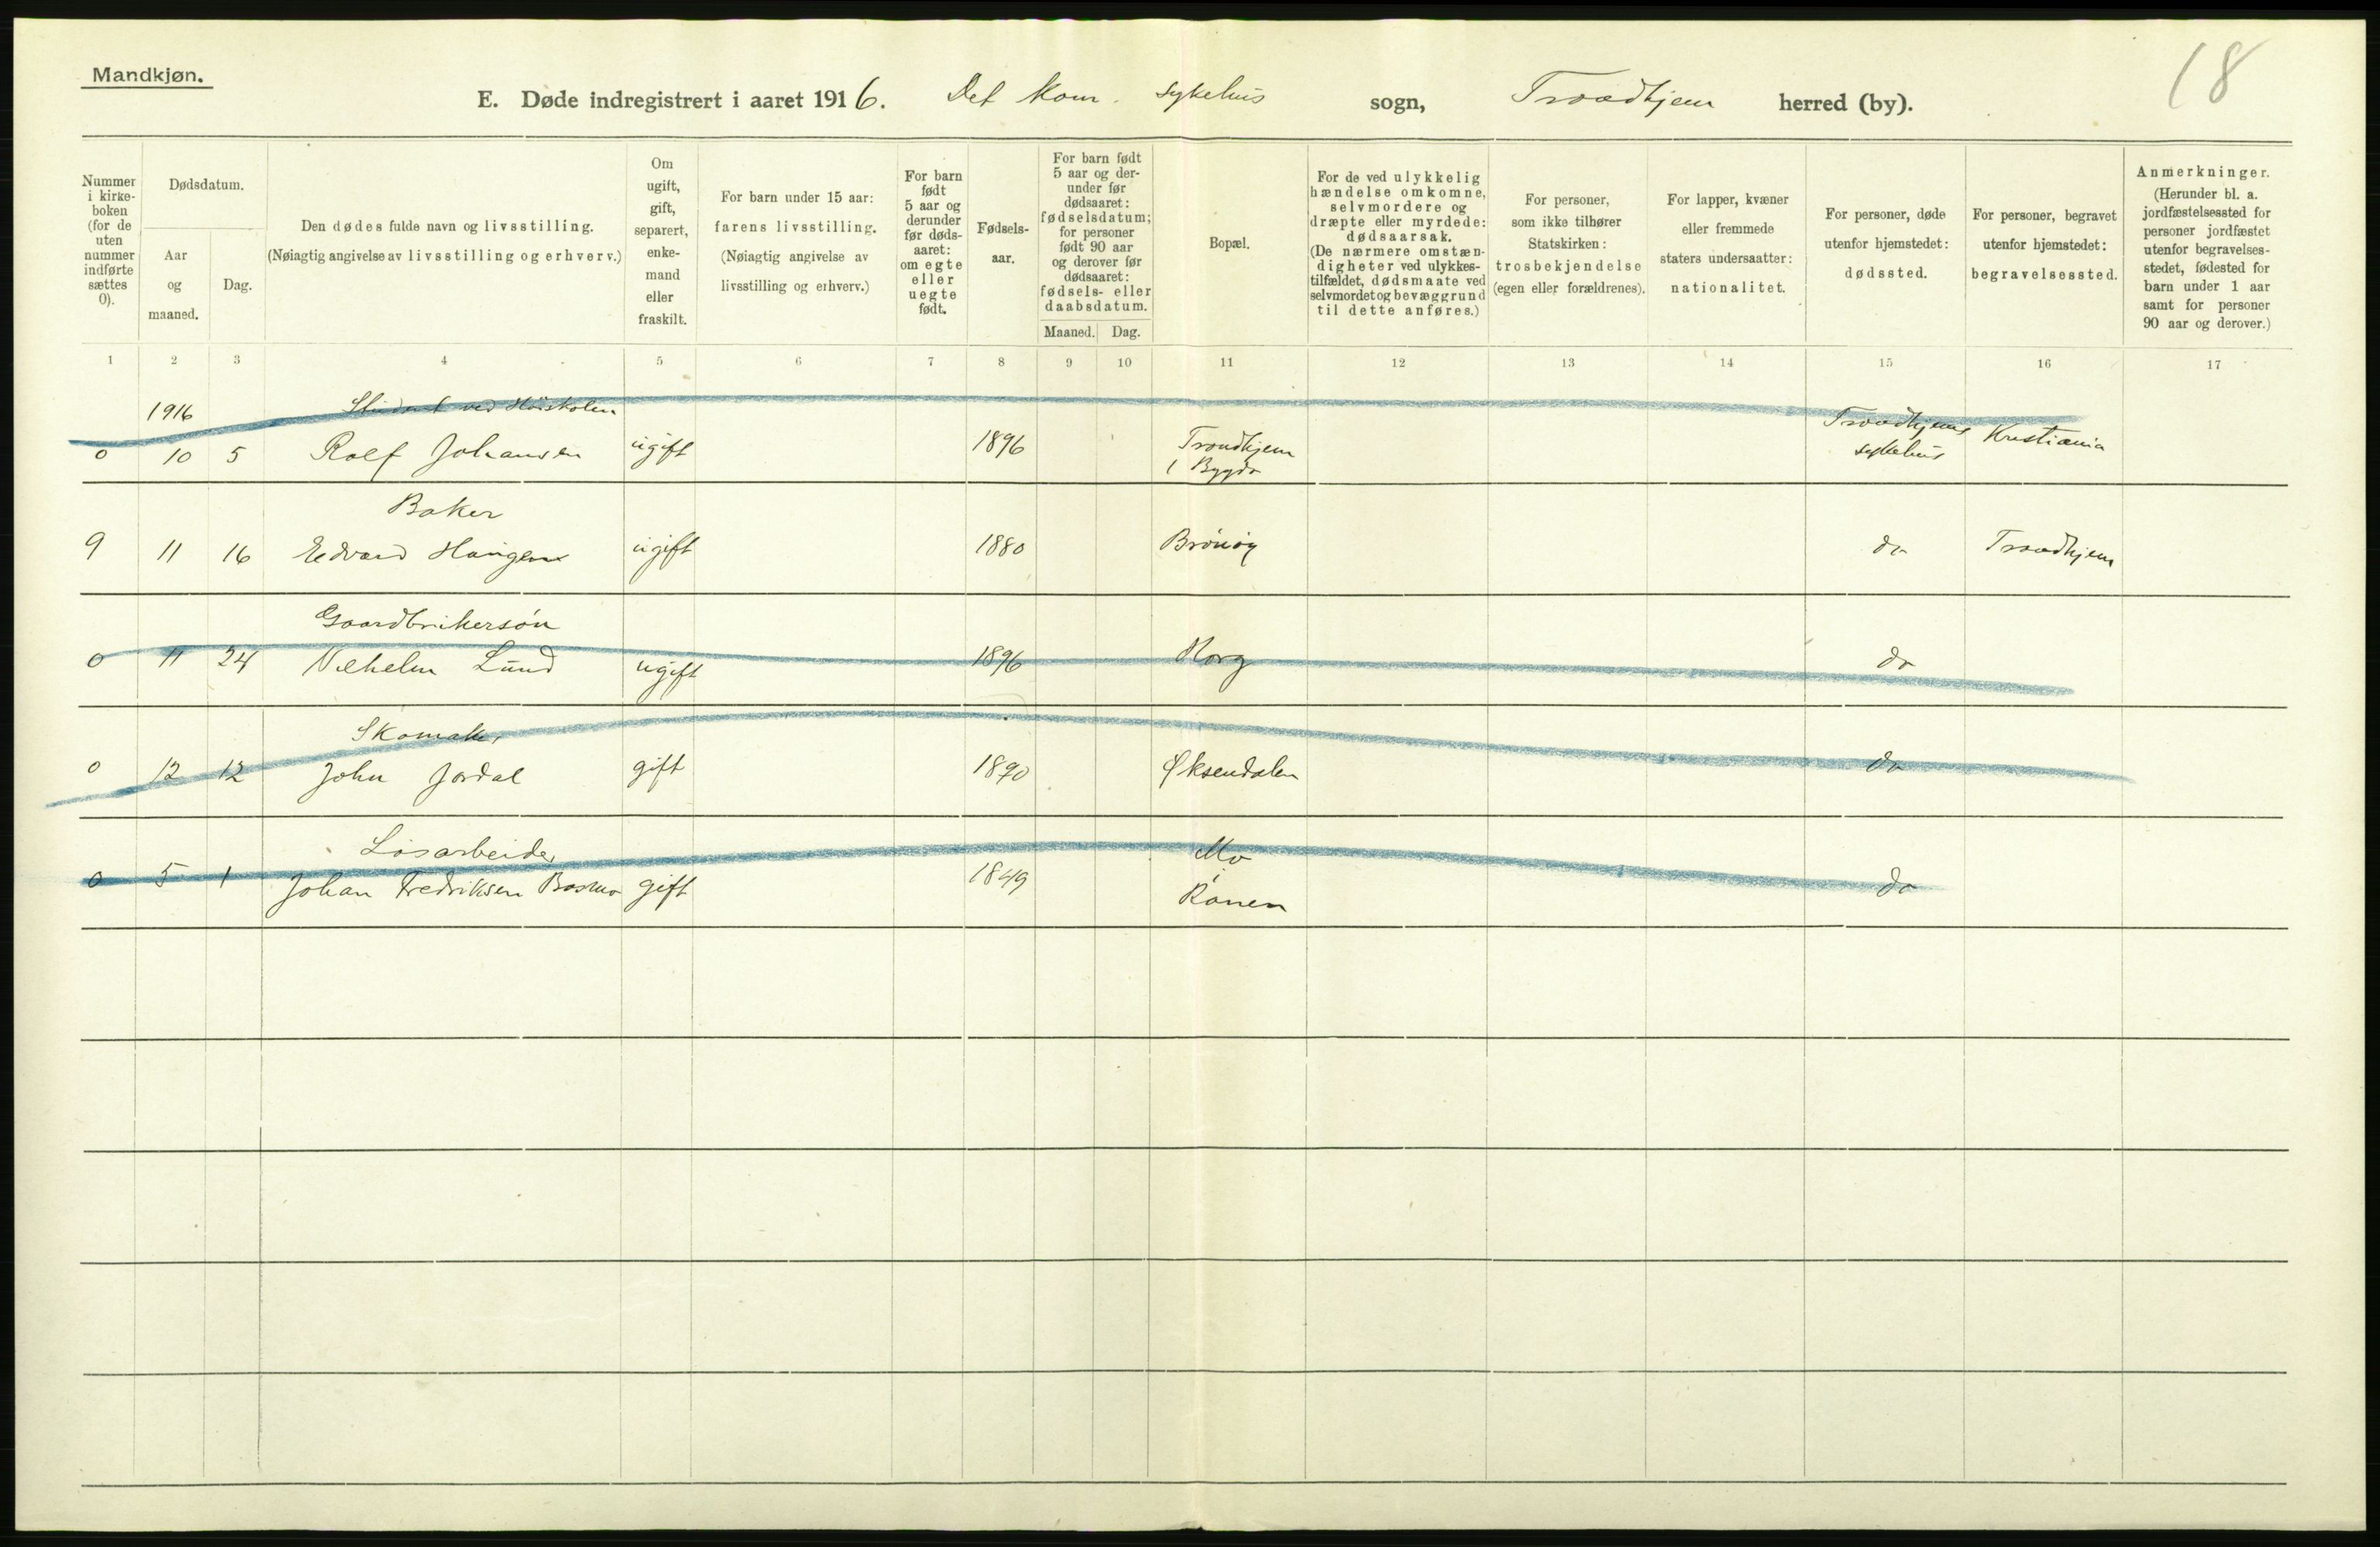 Mandkjøn.
18
E. Døde indregistrert i aaret 1916. Det kom. sykehus sogn, Trondhjem herred (by).
Nummer i kirke-boken (for de uten nummer indførte sættes 0).
Dødsdatum.
Aar og maaned.
Dag.
Den dødes fulde navn og livsstilling.
(Nøiagtig angivelse av livsstilling og erhverv.)
Om ugift, gift, separert, enke-mand eller fraskilt.
For barn under 15 aar: farens livsstilling.
(Nøiagtig angivelse av livsstilling og erhverv.)
For barn født 5 aar og derunder før døds-aaret: om egte eller uegte født.
Fødsels-aar.
For barn født 5 aar og der-under før dødsaaret: fødselsdatum; for personer født 90 aar og derover før dødsaaret: fødsels- eller daabsdatum.
Maaned. Dag.
Bopæl.
For de ved ulykkelig hændelse omkomne, selvmordere og dræpte eller myrdede: dødsaarsak.
(De nærmere omstæn-digheter ved ulykkes-tilfældet, dødsmaate ved selvmordet og bevæggrund til dette anføres.)
For personer, som ikke tilhører Statskirken: trosbekjendelse (egen eller forældrenes).
For lapper, kvæner eller fremmede staters undersaatter: nationalitet.
For personer, døde utenfor hjemstedet: dødssted.
For personer, begravet utenfor hjemstedet: begravelsessted.
Anmerkninger.
(Herunder bl. a. jordfæstelsessted for personer jordfæstet utenfor begravelses-stedet, fødested for barn under 1 aar samt for personer 90 aar og derover.)
1 2 3 4 5 6 7 8 9 10 11 12 13 14 15 16 17
1916 Student ved Høiskolen
0 10 5 Rolf Johansen ugift 1896 Trondhjem Trondhjems sykehus Kristiania
Baker
9 11 16 Edvard Haugen ugift 1880 Brönöy do Trondhjem
Gaardbrukersön
0 11 24 Vilhelm Lund ugift 1896 Horg do
Skomaker
0 12 12 John Jordal gift 1890 Øksendalen do
Løsarbeider Mo
0 5 1 Johan Fredriksen Basmo gift 1849 Ranen do